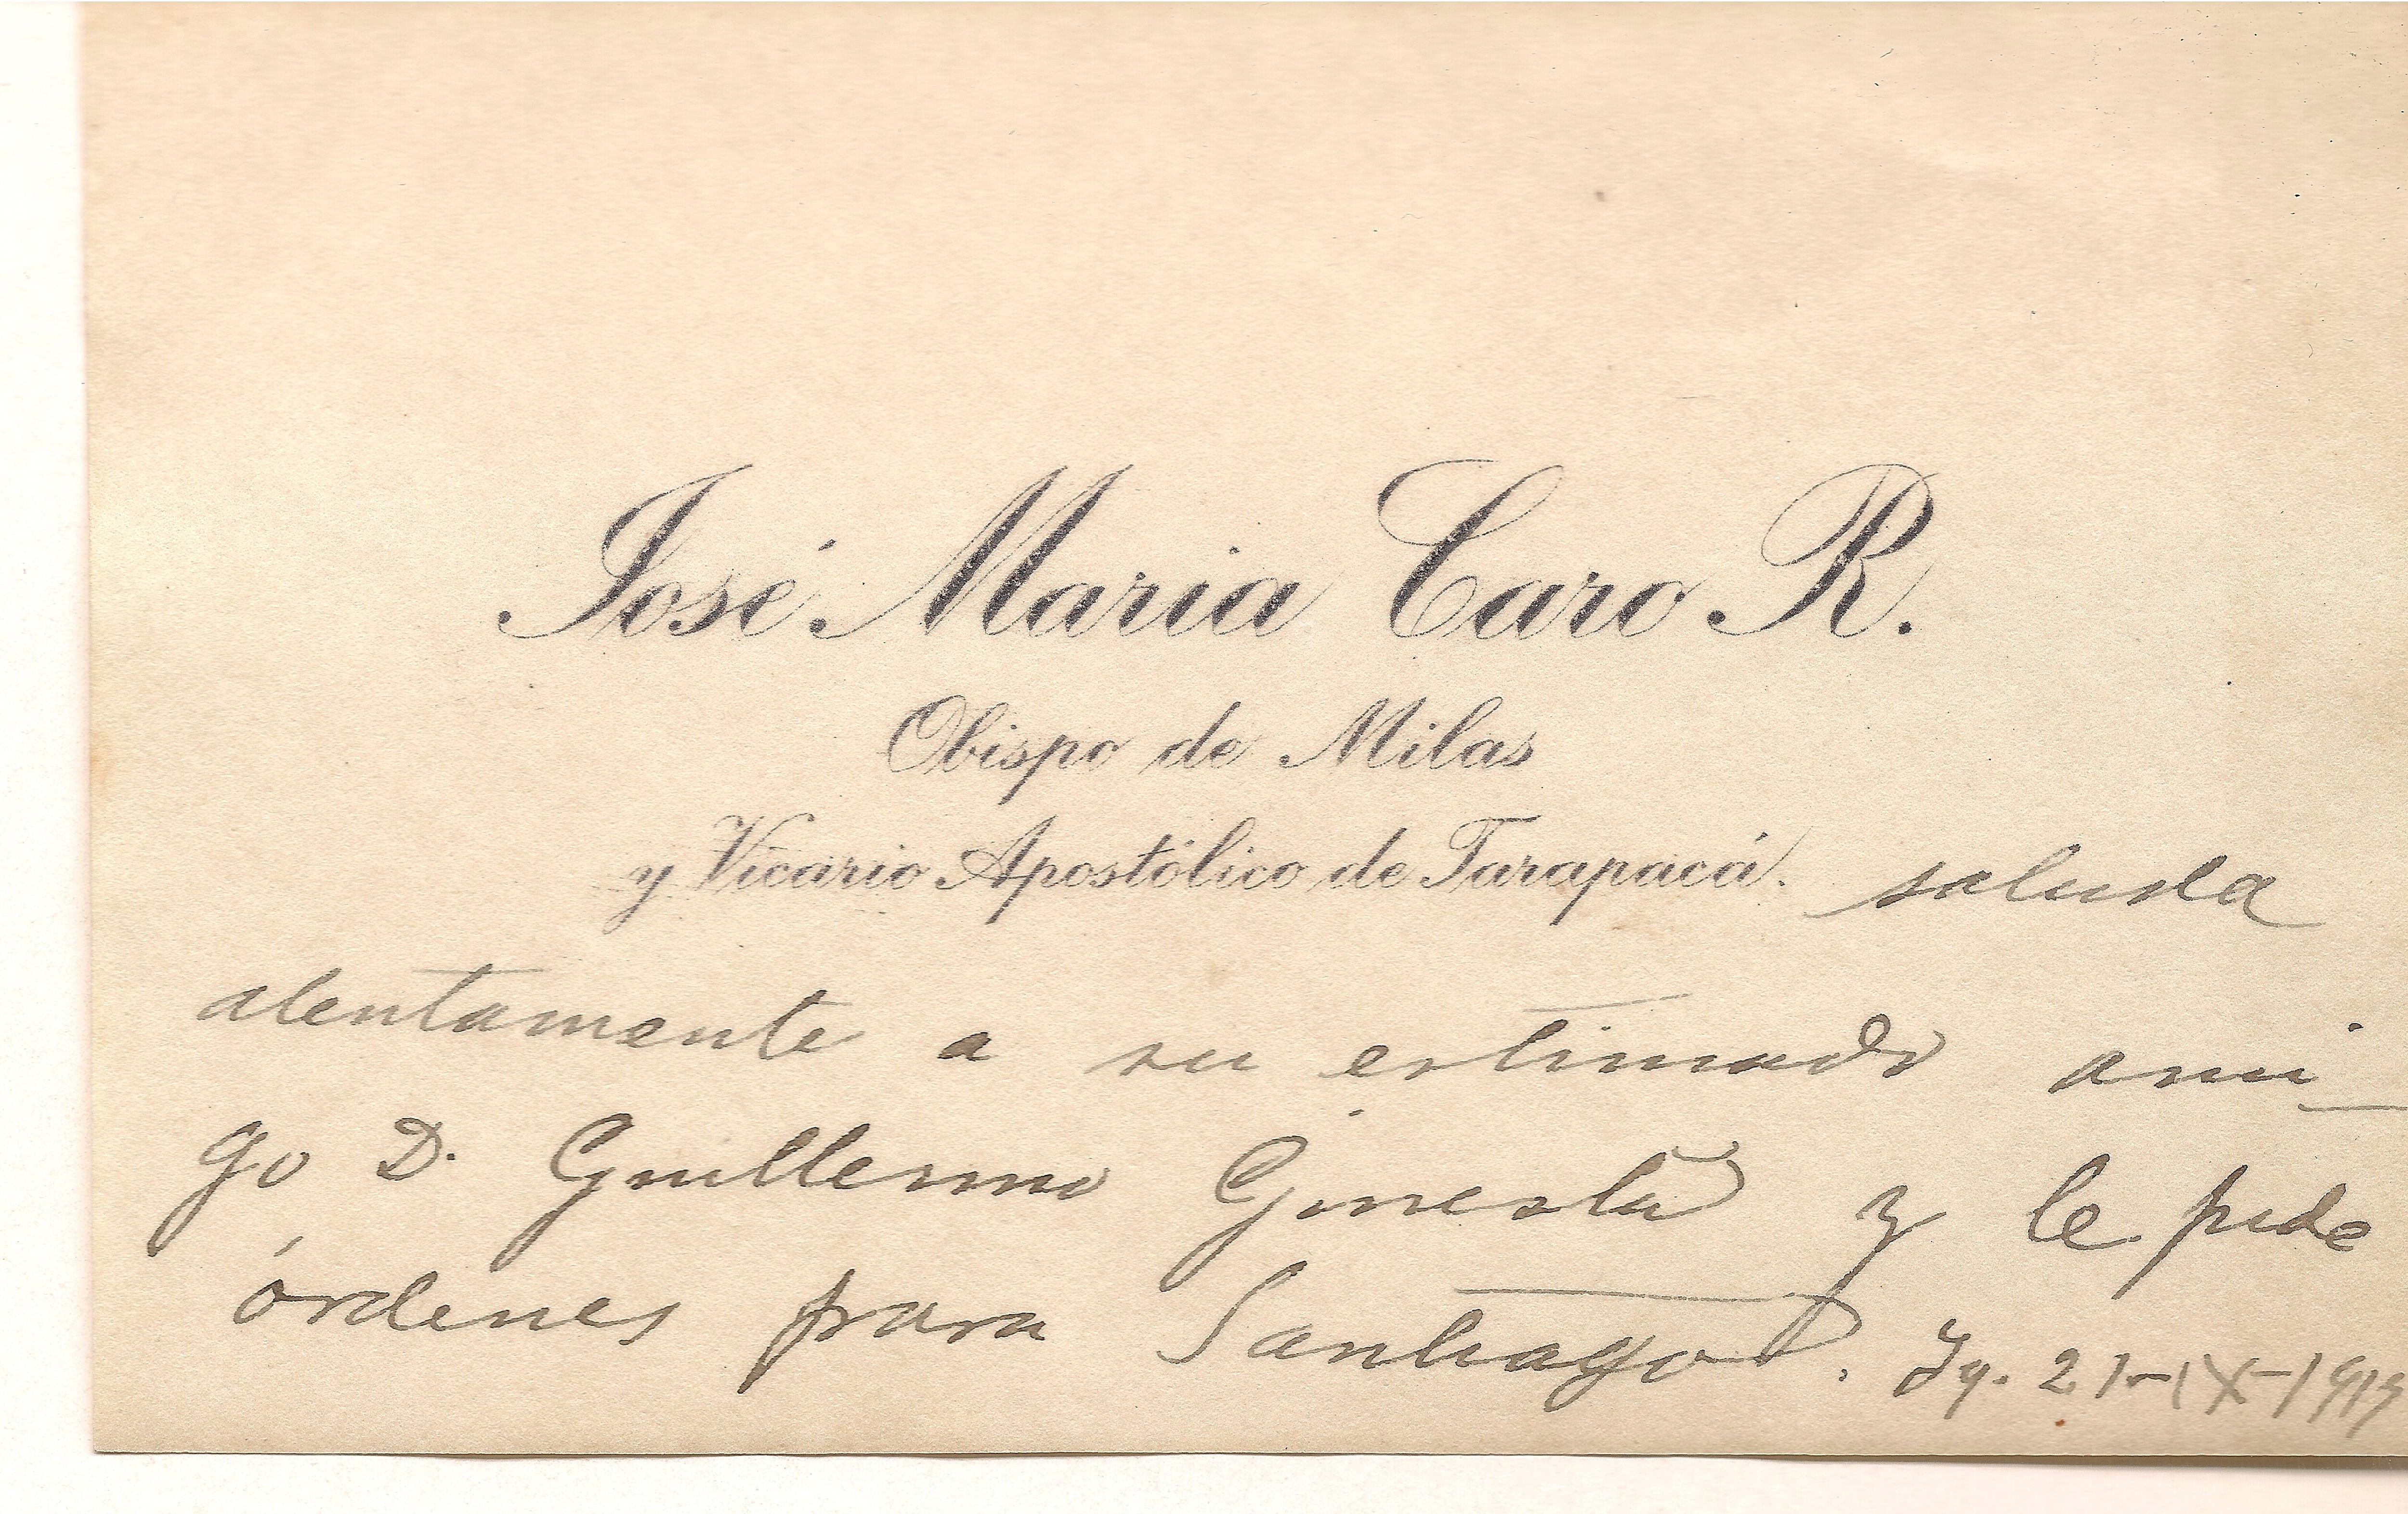 José Maria Caro R.
Obispo de Milas
y Vicario Apostólico de Tarapacá. saluda
atentamente a su estimado ami-
go D. Guillermo Ginestá y le pide
órdenes para Santiago. Iq. 21-IX-1913